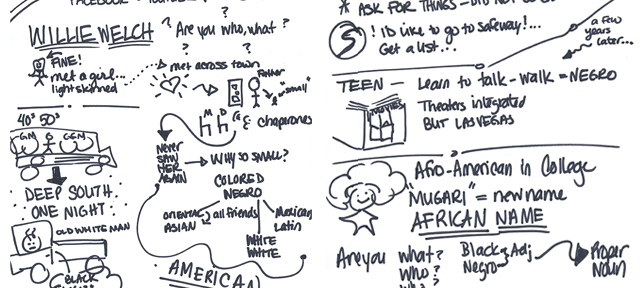 ?
WILLIE WELCH ? Are you who, what?
? ?
FINE!
met a girl...
lightskinned
met across town
Father
"small"
M D
chaperones
40s 50s
GM G GGM
NEVER
SAW
HER
AGAIN
WHY SO SMALL?
COLORED
NEGRO
ORIENTAL
ASIAN
all friends
Mexican
Latin
WHITE
WHITE
DEEP SOUTH.
ONE NIGHT.
OLD WHITE MAN
BLACK
AMERICAN
* ASK FOR THINGS
S ! I'D like to go to safeway!...
Get a list...
a few
years
later...
TEEN — Learn to talk-walk = NEGRO
MOVIES
Theaters integrated
BUT LAS VEGAS
Afro-American in College
"MUGARI" = new name
AFRICAN NAME
Are you what?
Who?
Black Adj
Negro
Proper
Noun